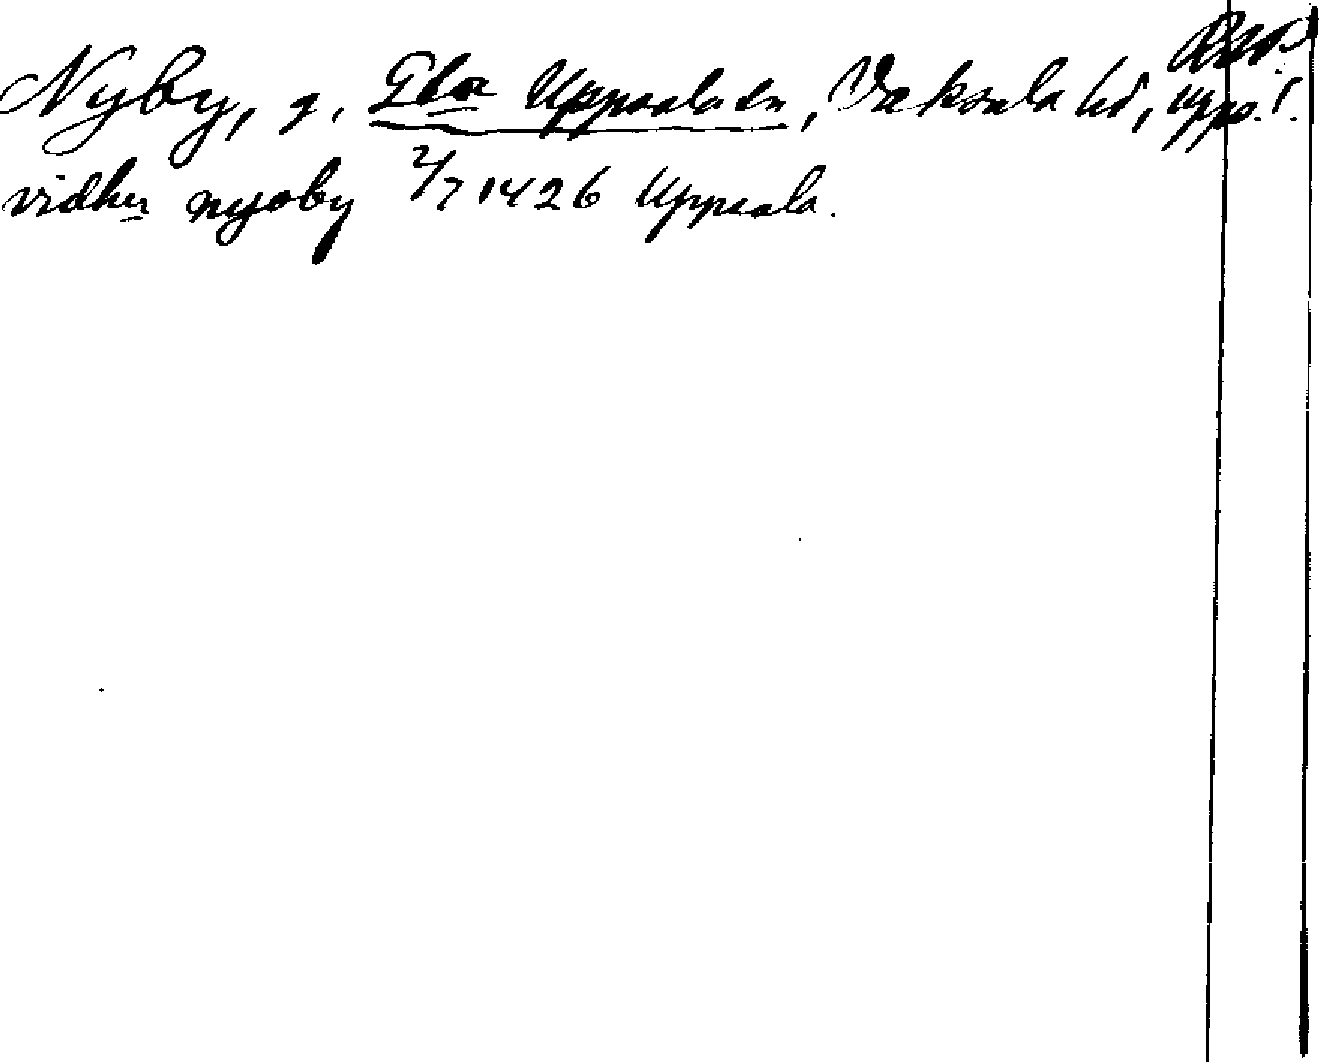 Nyby, g. Gla Uppsala sn, Vaksala hd, Uppl.
vidher nyoby 2/7 1426 Uppsala.